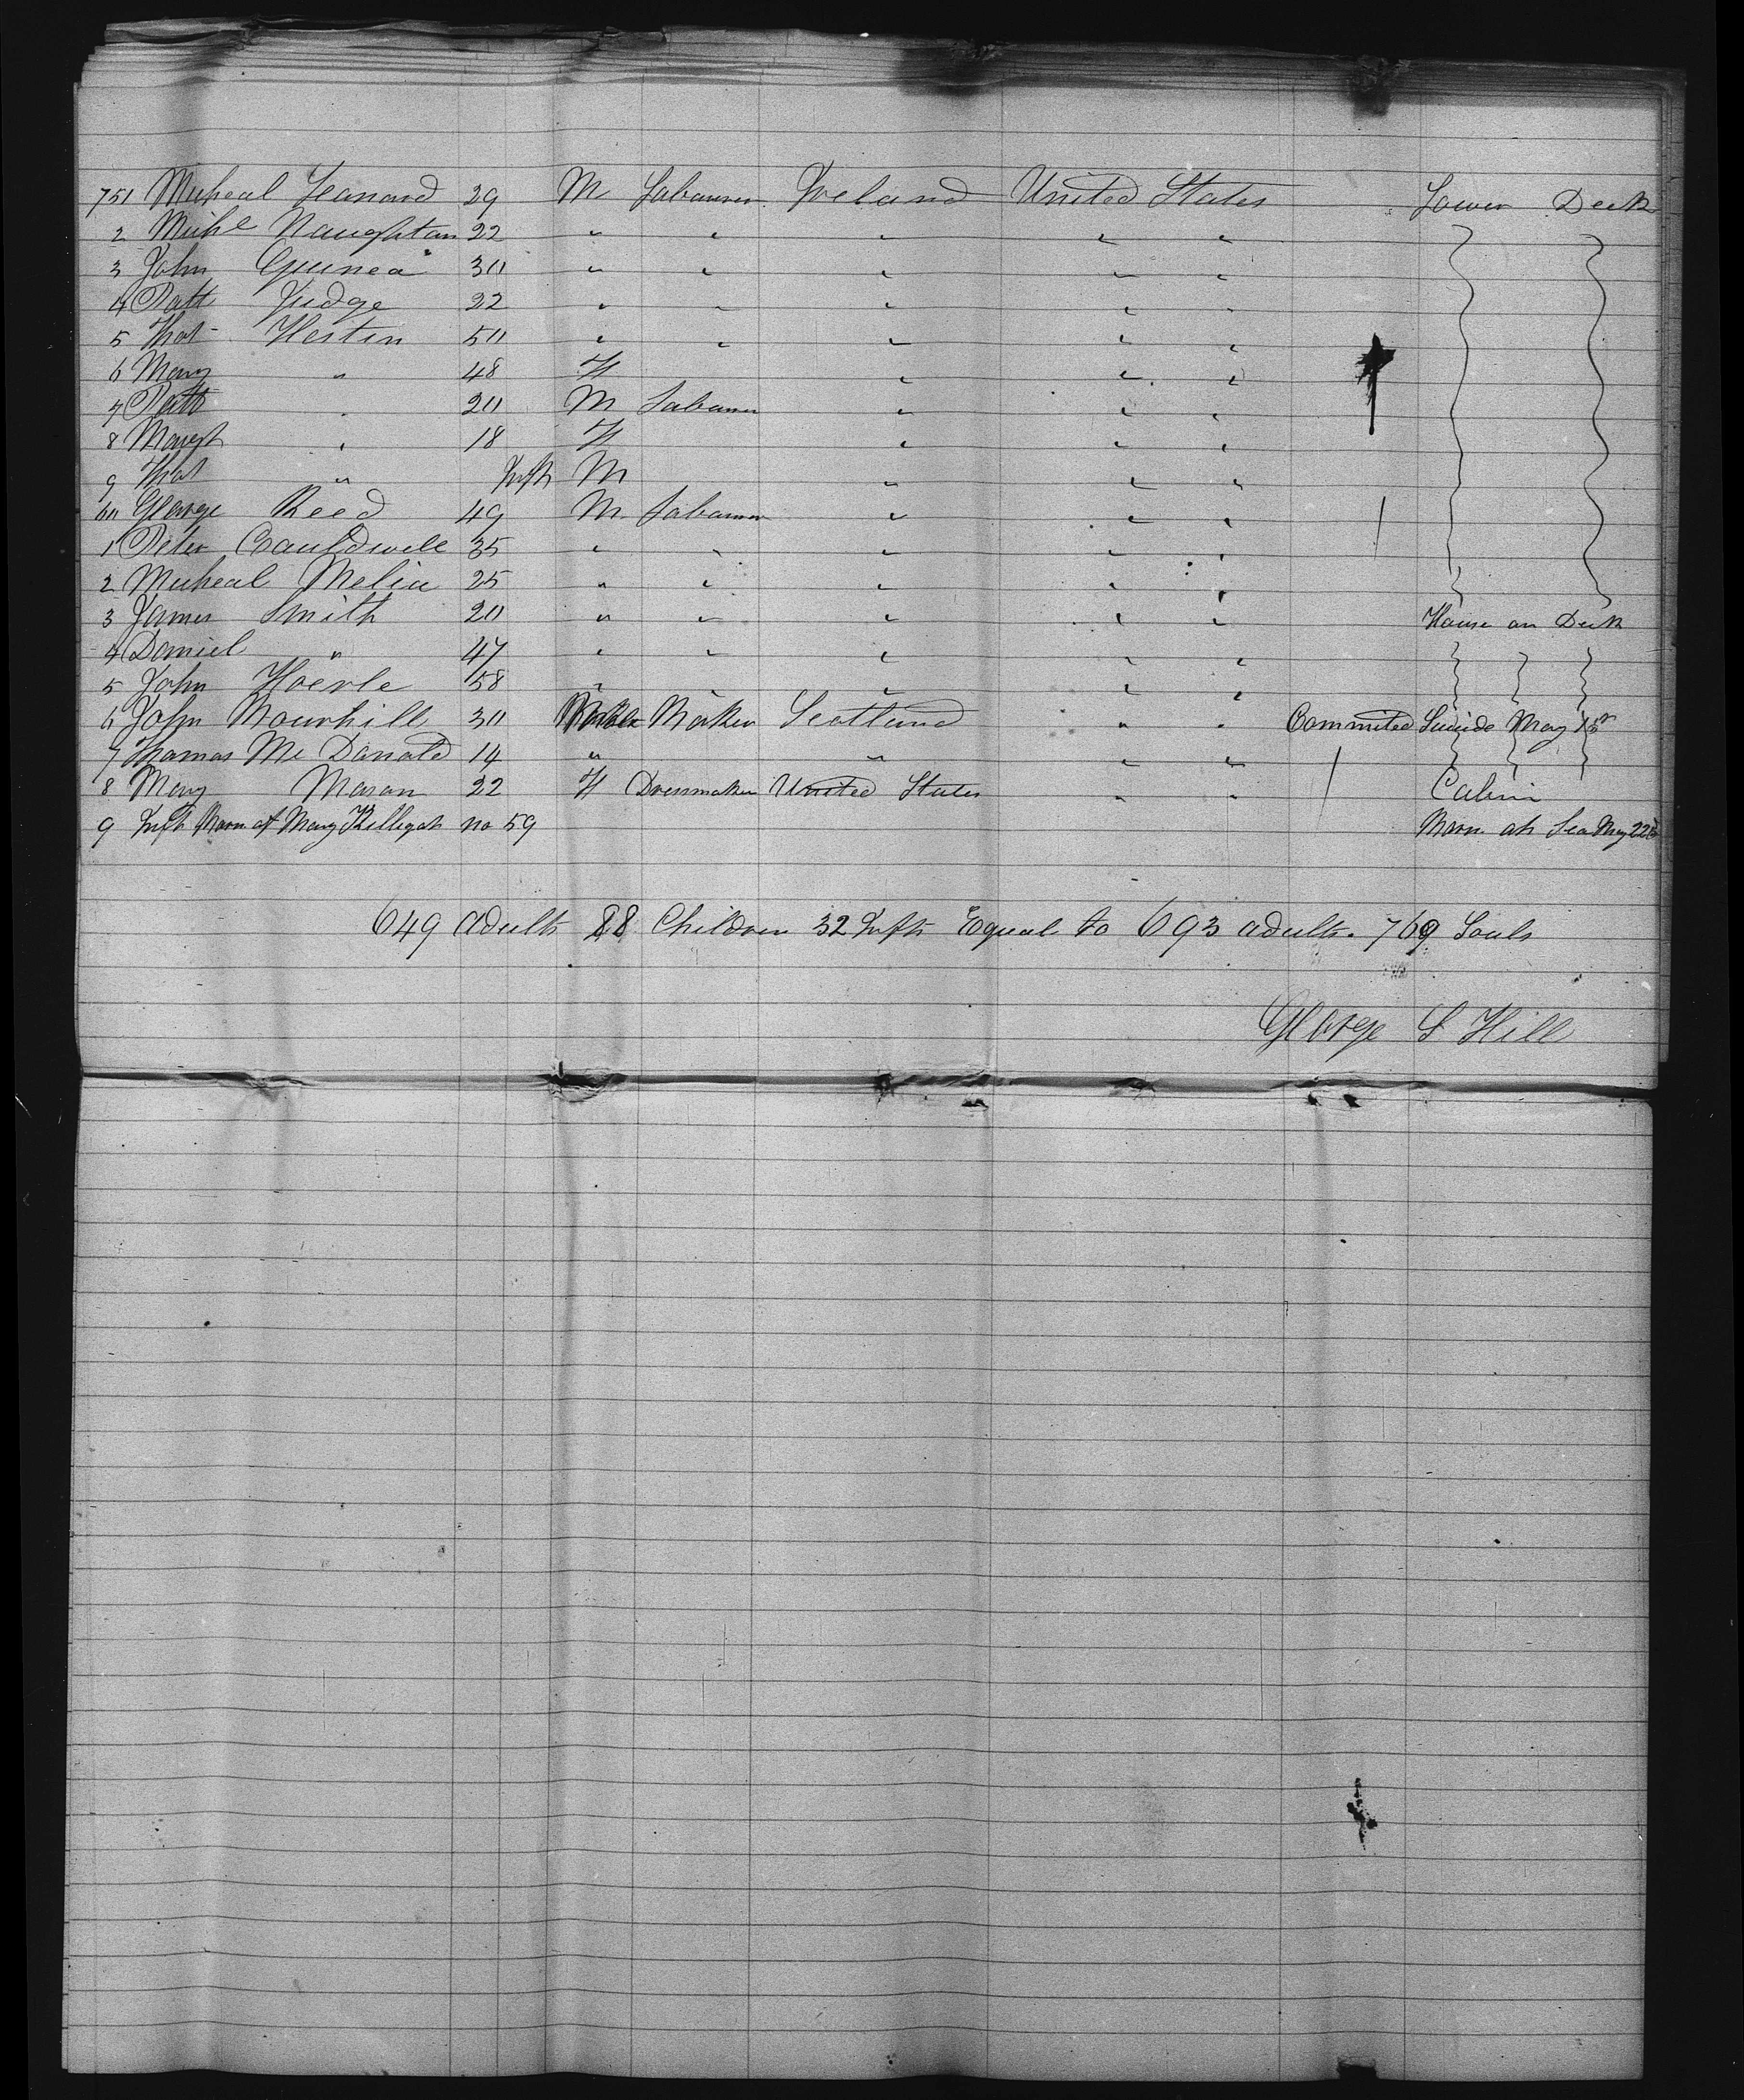 751 Micheal Leanard 29 M Labourer Ireland United States Lower Deck
2 Michl Naughtan 22 " " " " "
3 John Guinea 30 " " " " "
4 Patt Judge 22 " " " " "
5 Thos Hestin 50 " " " " "
6 Mary " 48 F " " "
7 Patt " 20 M Labourer " " "
8 Margt " 18 F " " "
9 Thos " Inft M " " "
60 George Reed 49 M Labourer " " "
1 Peter Cauldwell 35 " " " " "
2 Micheal Melia 25 " " " " "
3 James Smith 20 " " " " " House on Deck
4 Daniel " 47 " " " " "
5 John Hoerle 58 " " " " "
6 John Mourhill 30 Maker Scotland " " Commited Suicide May 15th
7 Thomas Mc Donald 14 " " " "
8 Mary Mason 22 F Dressmaker United States " " Cabin
9 Inft Born of Mary Killigat no 59 Born at Sea May 22d
649 adults 88 Children 32 Infts Equal to 693 adults. 769 Souls
George S Hill